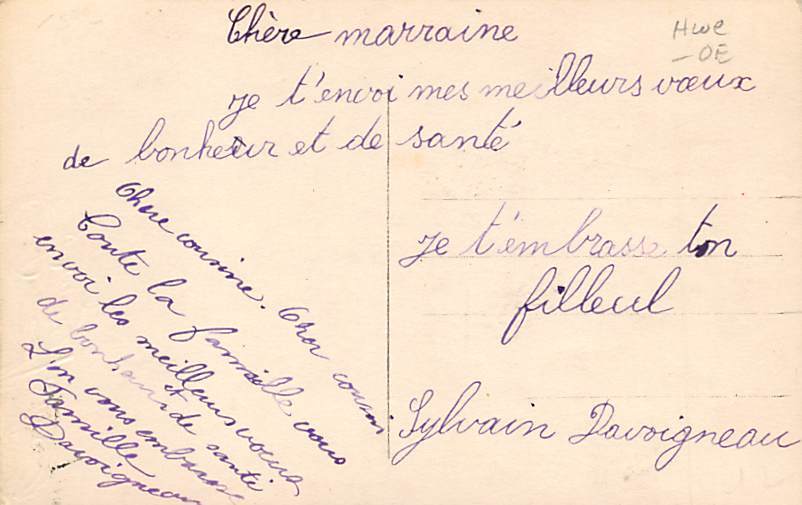 Chère marraine
Hwe
-OE
je t'envoi mes meilleurs vœux
de bonheur et de santé
je t'embrasse ton
filleul
Sylvain Davoigneau
Chère cousine. Cher cousin
Toute la famille vous
envoi les meilleurs vœux
de bonheur et de santé
L'on vous embrasse
Famille
Davoigneau